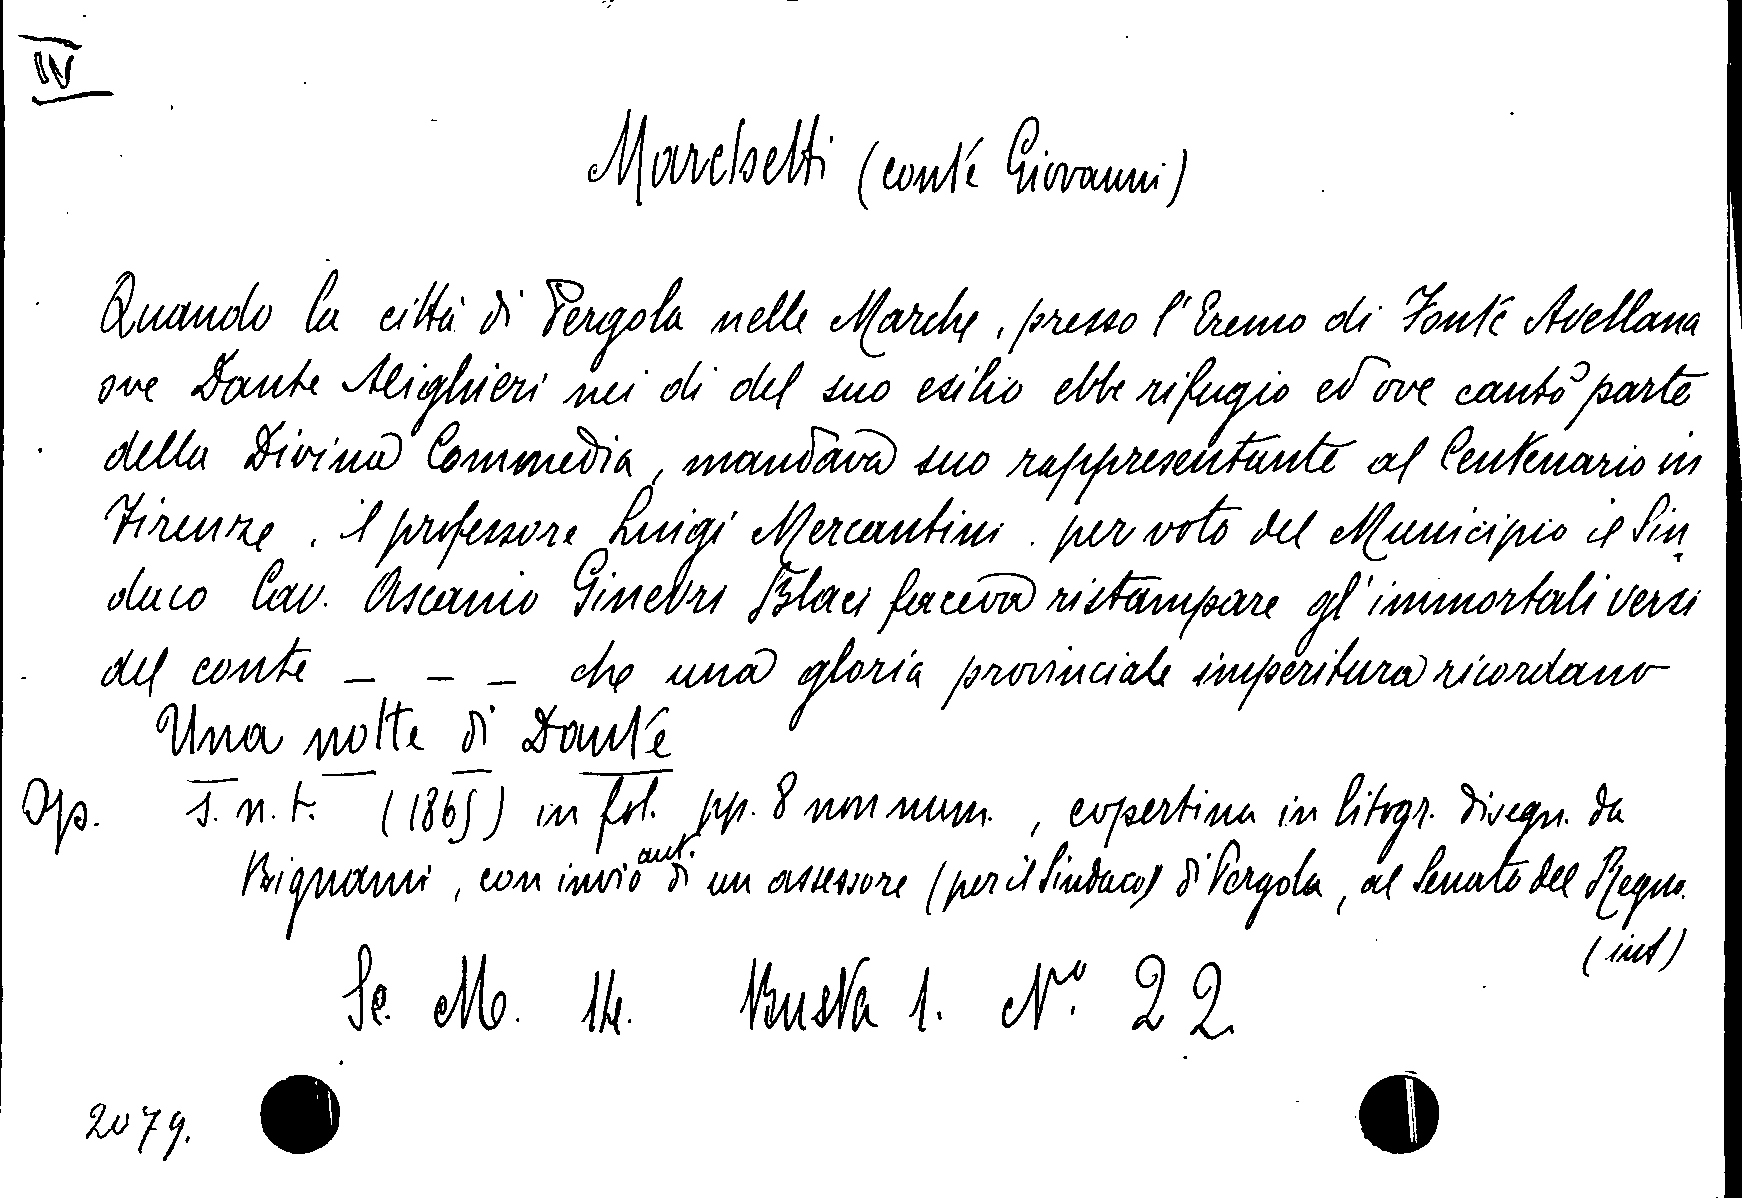 IV
Marchetti (conte Giovanni)
Quando la città di Pergola nelle Marche, presso l'Eremo di Fonte Avellana
ove Dante Alighieri nei di del suo esilio ebbe rifugio ed ove cantò parte
della Divina Commedia, mandava suo rappresentante al Centenario in
Firenze, il professore Luigi Mercantini. per voto del Municipio il Sin-
daco Cav. Ascanio Ginevri Blasi faceva ristampare gl'immortali versi
del conte _ _ _ che una gloria provinciale imperitura ricordano
Una notte di Dante
Op. s. n. t. (1865) in fol. pp. 8 non num., copertina in litogr. disegn. da
Bignami, con invio aut. di un assessore (per il Sindaco) di Pergola, al Senato del Regno.
(int)
Sc. M. 14. Busta 1. Nº. 22
2079.